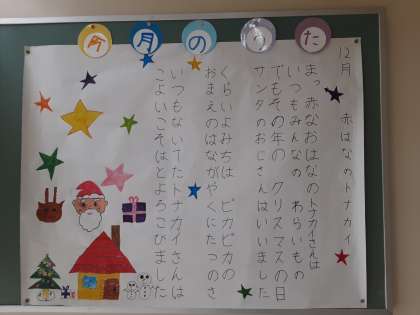 今月のうた
12月 赤はなのトナカイ
まっ赤なおはなのトナカイさんは
いつもみんなの わらいもの
でもその年の クリスマスの日
サンタのおじさんはいいました
くらいよみちは ピカピカの
おまえのはながやくにたつのさ
いつもないてたトナカイさんは
こよいこそはとよろこびました